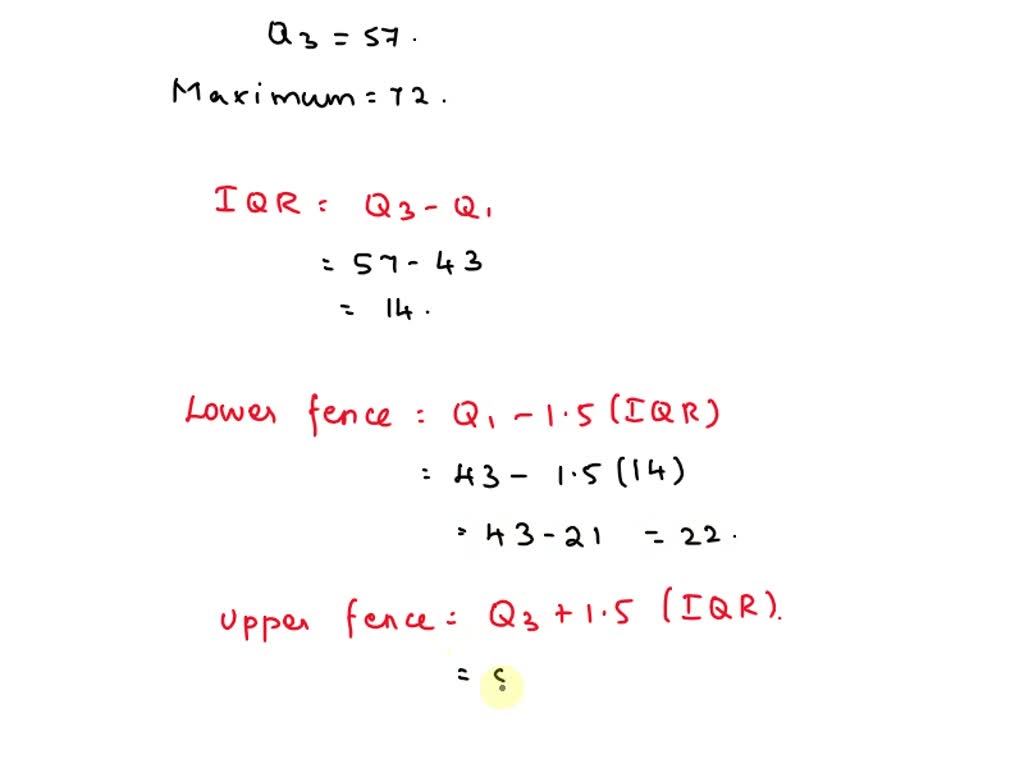 Q3 = 57.
Maximum = 72.
IQR = Q3 - Q1
= 57 - 43
= 14.
Lower fence = Q1 - 1.5 (IQR)
= 43 - 1.5 (14)
= 43 - 21 = 22.
Upper fence = Q3 + 1.5 (IQR).
=